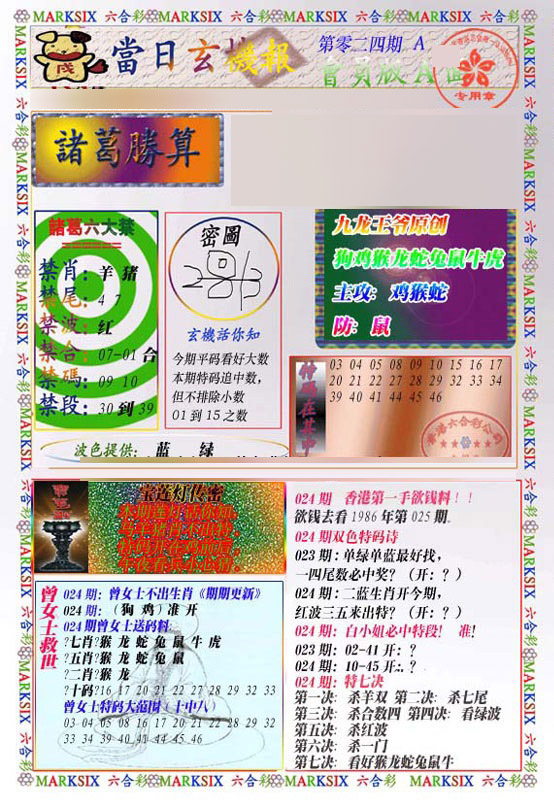 MARKSIX 六合彩 MARKSIX 六合彩 MARKSIX 六合彩 MARKSIX 六合彩
當日玄機報
第零二四期 A
會員版A面
专用章
諸葛勝算
諸葛六大禁
禁肖：羊 猪
禁尾：4 7
禁波：红
禁合：07-01合
禁碼：09 10
禁段：30到39
密圖
2 13
玄機話你知
今期平码看好大数
本期特码追中数，
但不排除小数
01到15之数
九龙王爷原创
狗鸡猴龙蛇兔鼠牛虎
主攻：鸡猴蛇
防：鼠
特码在其中
03 04 05 08 09 10 15 16 17
20 21 22 27 28 29 32 33 34
39 40 41 44 45 46
波色提供：蓝 绿
宝莲灯传密
曾女士救世
024期：曾女士不出生肖《期期更新》
024期：（狗 鸡）准开
024期曾女士送码料：
?七肖?猴 龙 蛇 兔 鼠 牛 虎
?五肖?猴 龙 蛇 兔 鼠
?二肖?猴 龙
?十码?16 17 20 21 22 27 28 29 32 33
曾女士特码大范围（十中八）
03 04 05 08 16 17 20 21 22 28 29 32
33 34 39 40 41 44 45 46
024期 香港第一手欲钱料！！
欲钱去看1986年第025期。
024期双色特码诗
023期：单绿单蓝最好找，
一四尾数必中奖？（开：？）
024期：二蓝生肖开今期，
红波三五来出特？（开：？）
024期：白小姐必中特段！ 准！
023期：02-41开：？
024期：10-45开：．？
024期：特七决
第一决：杀羊双 第二决：杀七尾
第三决：杀合数四 第四决：看绿波
第五决：杀红波
第六决：杀一门
第七决：看好猴龙蛇兔鼠牛
MARKSIX 六合彩 MARKSIX 六合彩 MARKSIX 六合彩 MARKSIX 六合彩